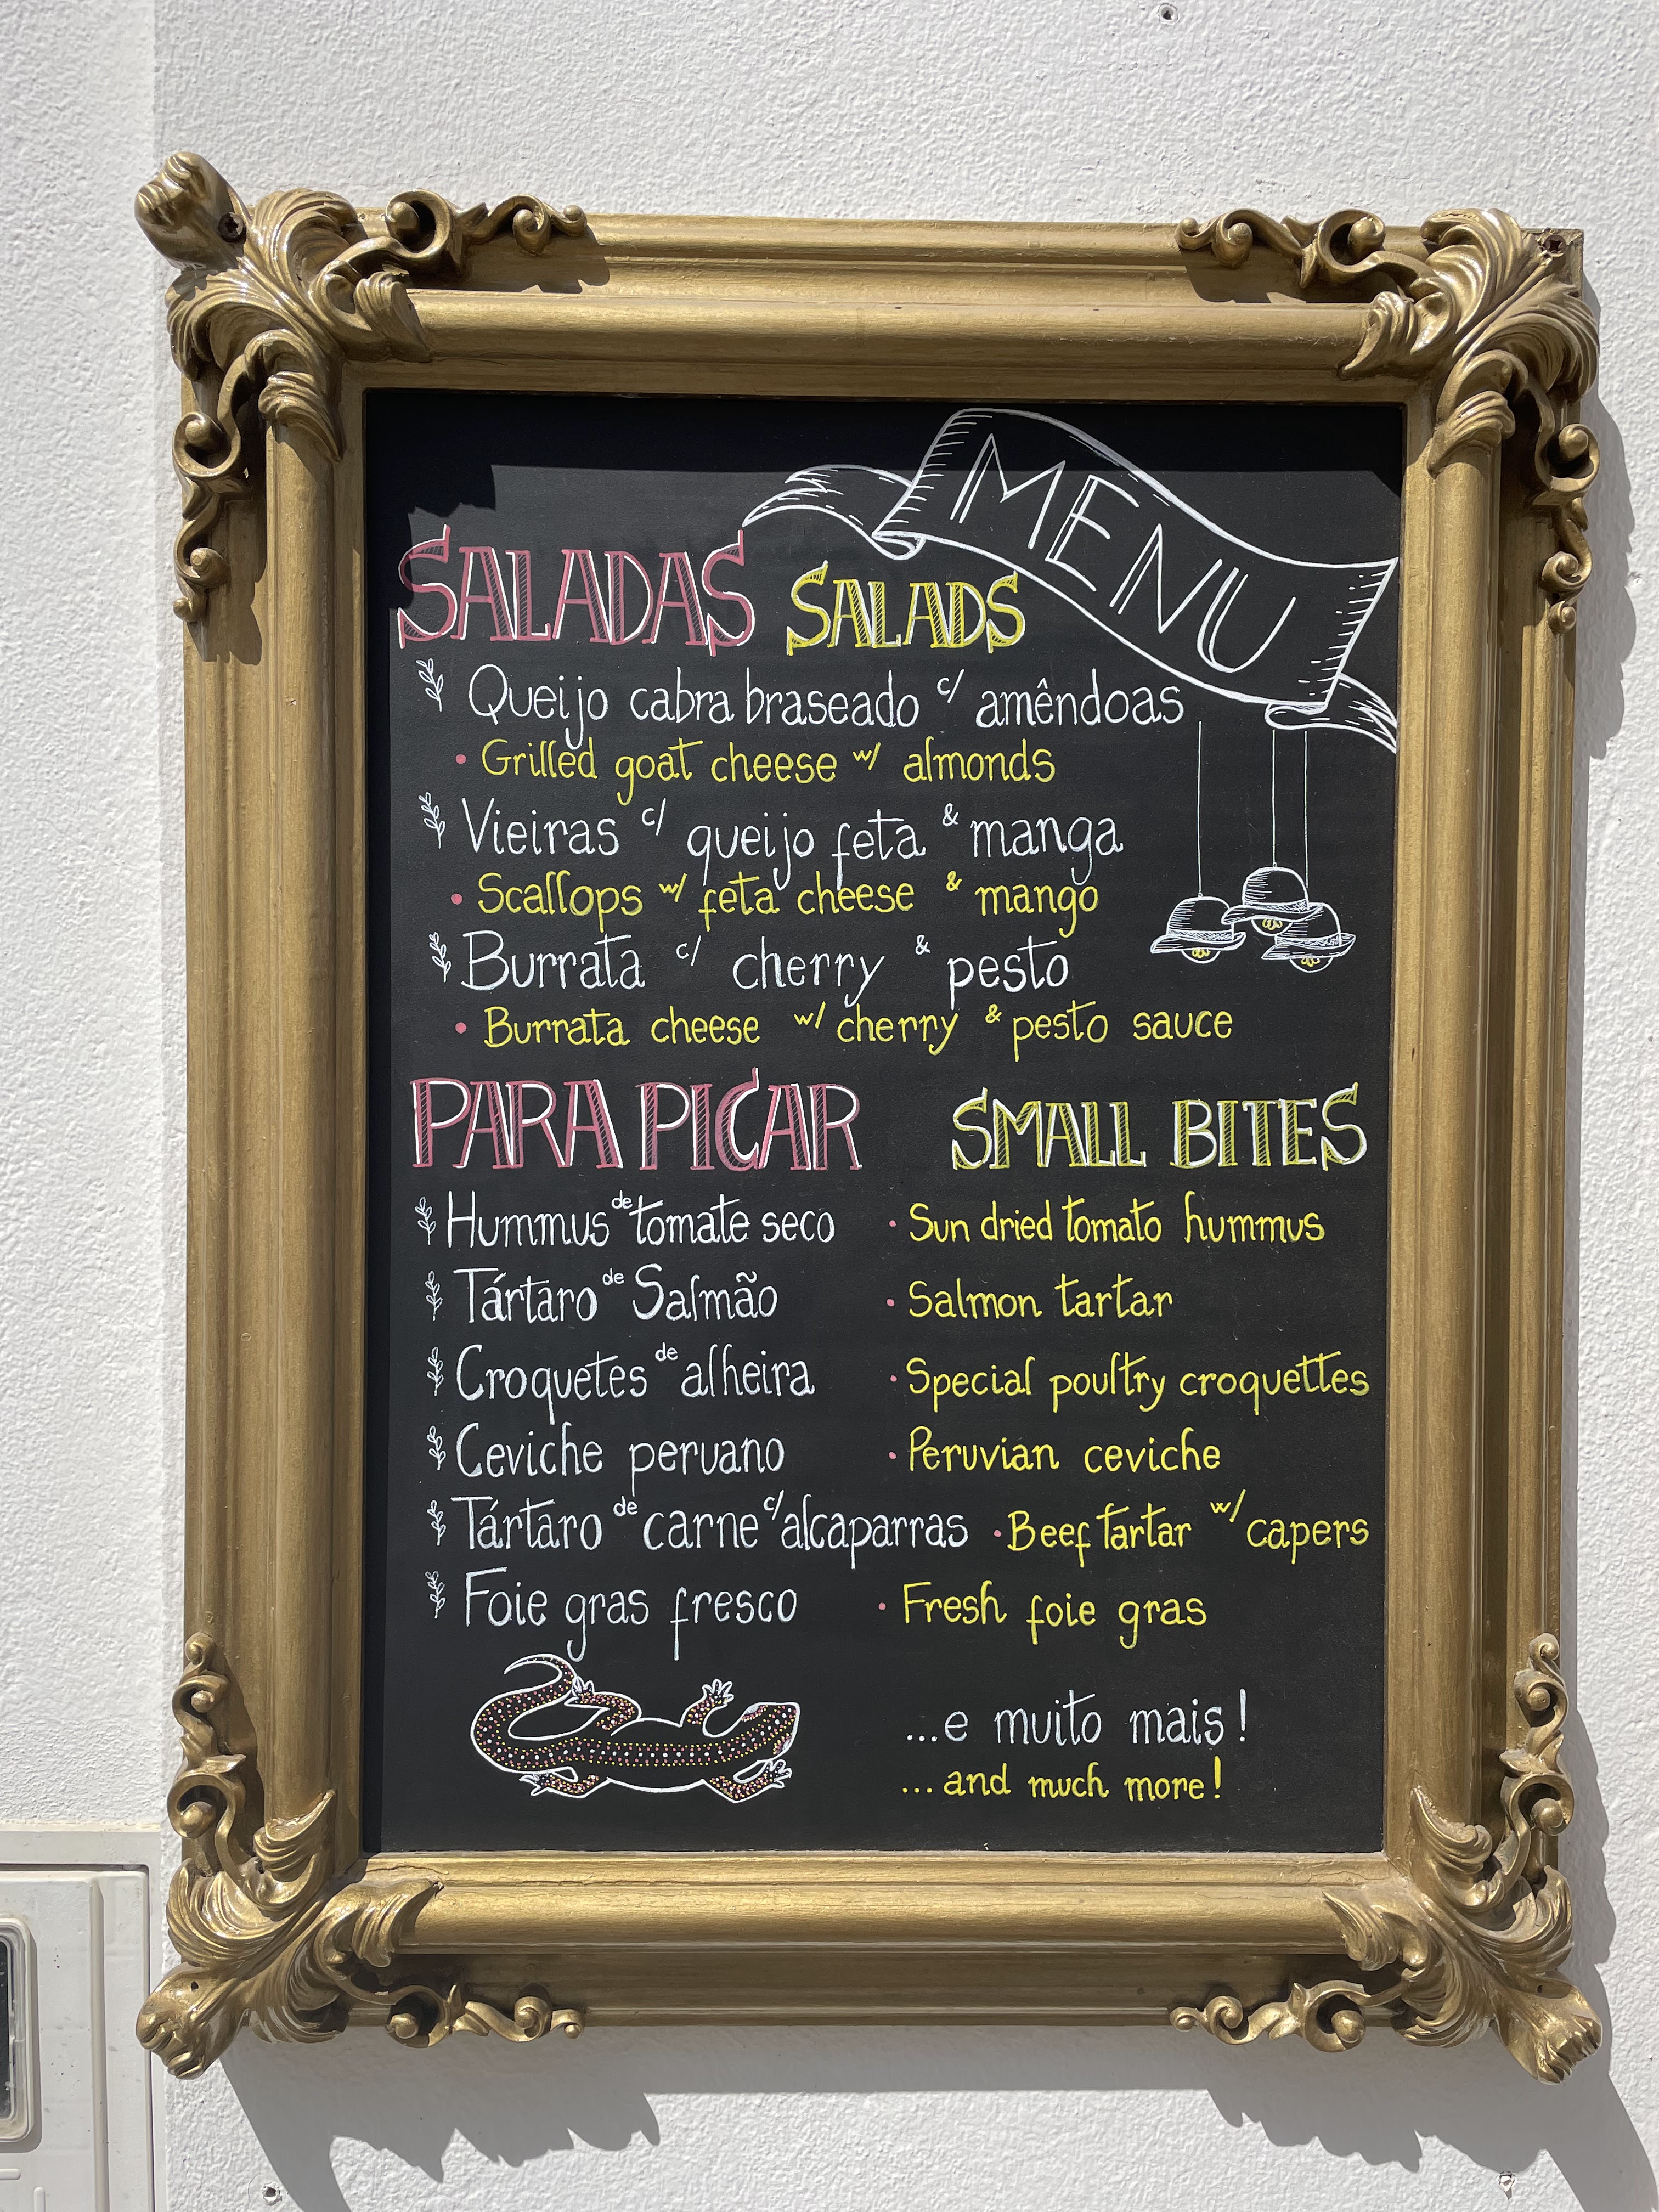 MENU
SALADAS SALADS
Queijo cabra braseado c/ amêndoas
Grilled goat cheese w/ almonds
Vieiras c/ queijo feta & manga
Scallops w/ feta cheese & mango
Burrata c/ cherry & pesto
Burrata cheese w/ cherry & pesto sauce
PARA PICAR SMALL BITES
Hummus de tomate seco · Sun dried tomato hummus
Tártaro de Salmão · Salmon tartar
Croquetes de alheira · Special poultry croquettes
Ceviche peruano · Peruvian ceviche
Tártaro de carne c/ alcaparras · Beef tartar w/ capers
Foie gras fresco · Fresh foie gras
...e muito mais!
...and much more!